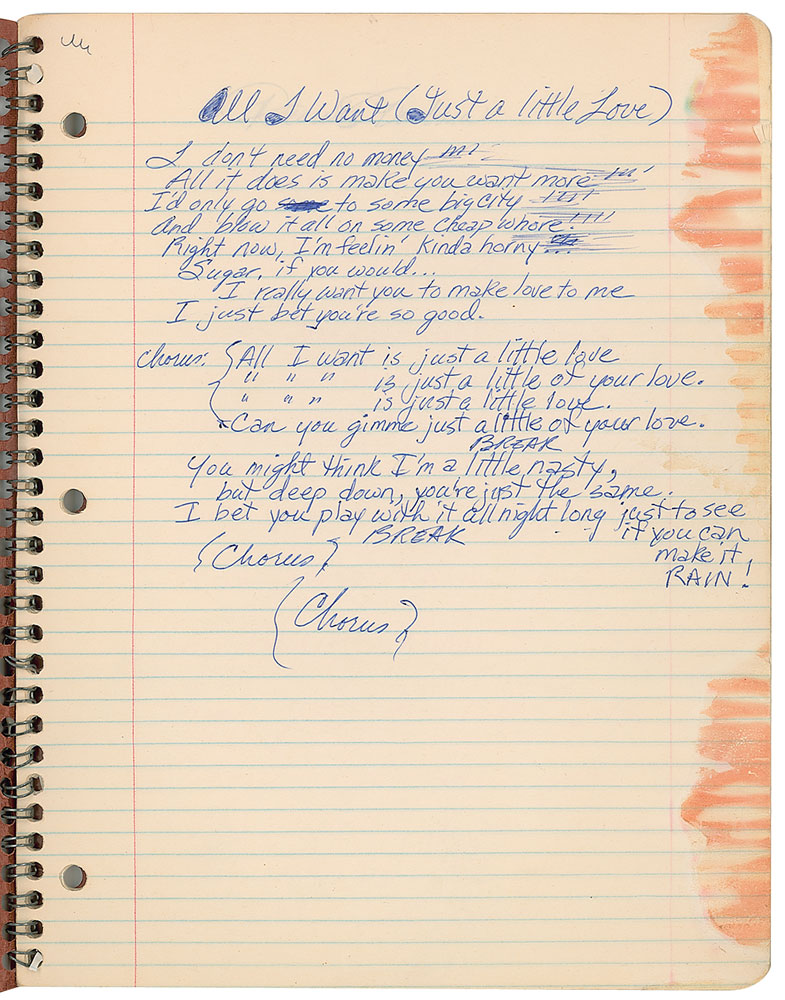 All I Want (Just a little Love)
I don't need no money !!!!
All it does is make you want more !!!!
I'd only go to some big city !!!!
And blow it all on some cheap whore!!!!!
Right now, I'm feelin' kinda horny...
Sugar, if you would...
I really want you to make love to me
I just bet you're so good.
Chorus: { All I want is just a little love
" " " is just a little of your love.
" " " is just a little love.
Can you gimme just a little of your love.
BREAK
You might think I'm a little nasty,
but deep down, you're just the same.
I bet you play with it all night long just to see
if you can
BREAK
make it
RAIN!
{Chorus}
{Chorus}